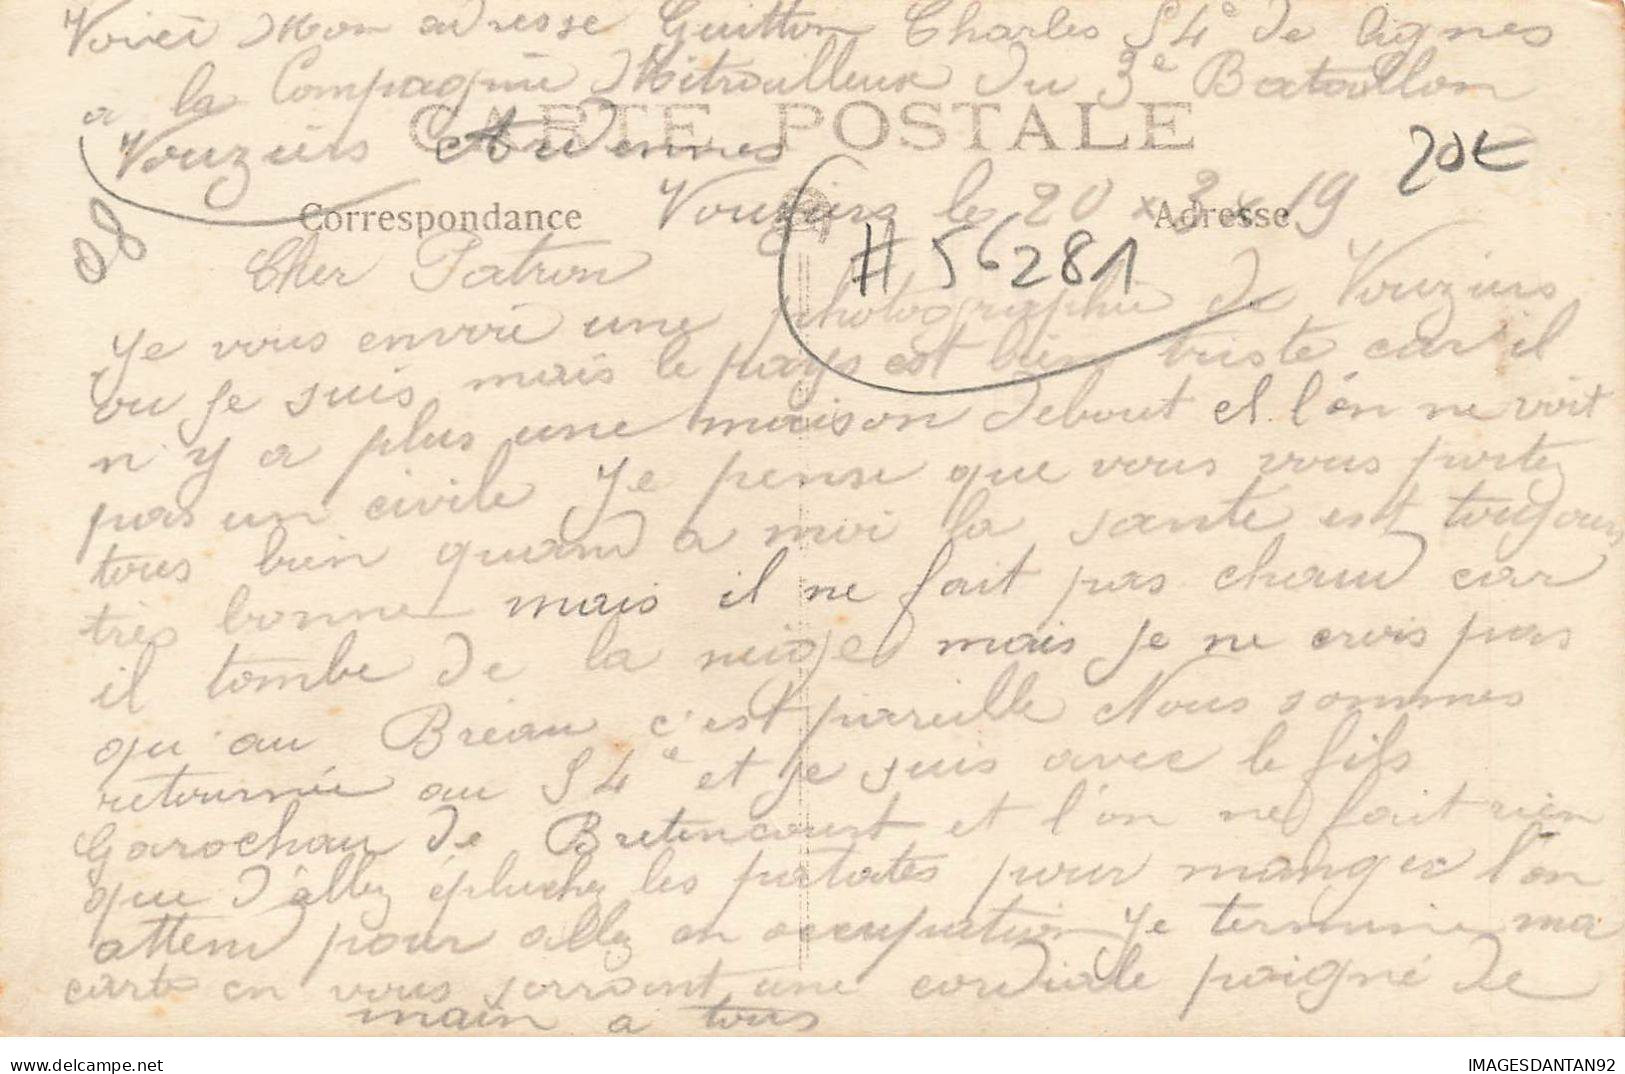 Voici Mon adresse Guitton Charles 54e de lignes
a la Compagnie Mitrailleuse du 3e Bataillon
CARTE POSTALE
Vouziers Ardennes
20€
Vouziers le 20 x 3 x 19
Correspondance
Adresse
08
#56281
Cher Patron
Je vous envoie une photographie de Vouziers
ou je suis mais le pays est bien triste car il
n y a plus une maison debout et l'on ne voit
pas un civile Je pense que vous vous portez
tous bien quand a moi la sante est toujours
très bonne mais il ne fait pas chaud car
il tombe de la neige mais je ne crois pas
qu'au Bréau c'est pareille Nous sommes
retournée au 54e et je suis avec le fils
Garochau de Bretencourt et l'on ne fait rien
que d'allez épluchez les patates pour manger l'on
attend pour allez en occupation Je termine ma
carte en vous serrant une cordiale poigné de
main a tous
IMAGESDANTAN92
delcampe.net